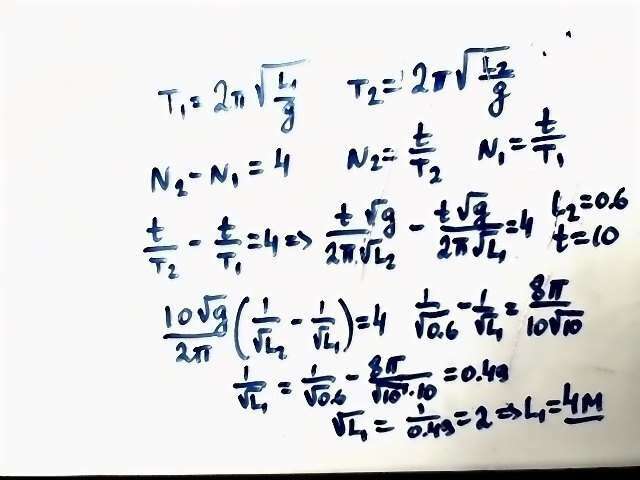 T₁ = 2π√(L₁/g)   T₂ = 2π√(L₂/g)
N₂ - N₁ = 4   N₂ = t/T₂   N₁ = t/T₁
t/T₂ - t/T₁ = 4 => t√g/2π√L₂ - t√g/2π√L₁ = 4   L₂ = 0.6
t = 10
10√g/2π (1/√L₂ - 1/√L₁) = 4   1/√0.6 - 1/√L₁ = 8π/10√10
1/√L₁ = 1/√0.6 - 8π/√10·10 = 0.49
√L₁ = 1/0.49 = 2 => L₁ = 4M